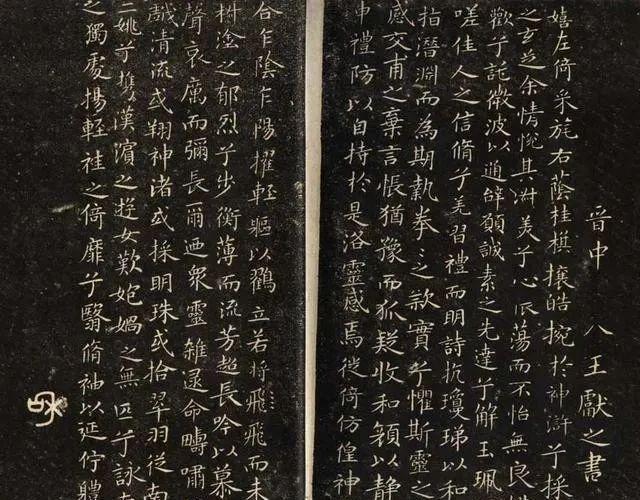 晉中 八王獻之書
嬉左倚采旄右蔭桂旗攘皓捥於神滸兮採
之玄芝余情悅其淑美兮心振蕩而不怡無良
歡兮託微波以通辭願誠素之先達兮解玉珮
嗟佳人之信脩兮羌習禮而明詩抗瓊珶以和
指潛淵而為期執拳之款實兮懼斯靈之
感交甫之棄言悵猶豫而狐疑收和顏以靜
申禮防以自持於是洛靈感焉徙倚仿偟神
合乍陰乍陽擢輕軀以鶴立若將飛飛而未
椒塗之郁烈兮步衡薄而流芳超長吟以慕
聲哀厲而彌長爾迺衆靈雜遝命疇嘯
戲清流或翔神渚或採明珠或拾翠羽從南
二姚兮攜漢濱之遊女歎媧之無匹兮詠
之獨處揚輕袿之倚靡兮翳脩袖以延佇體